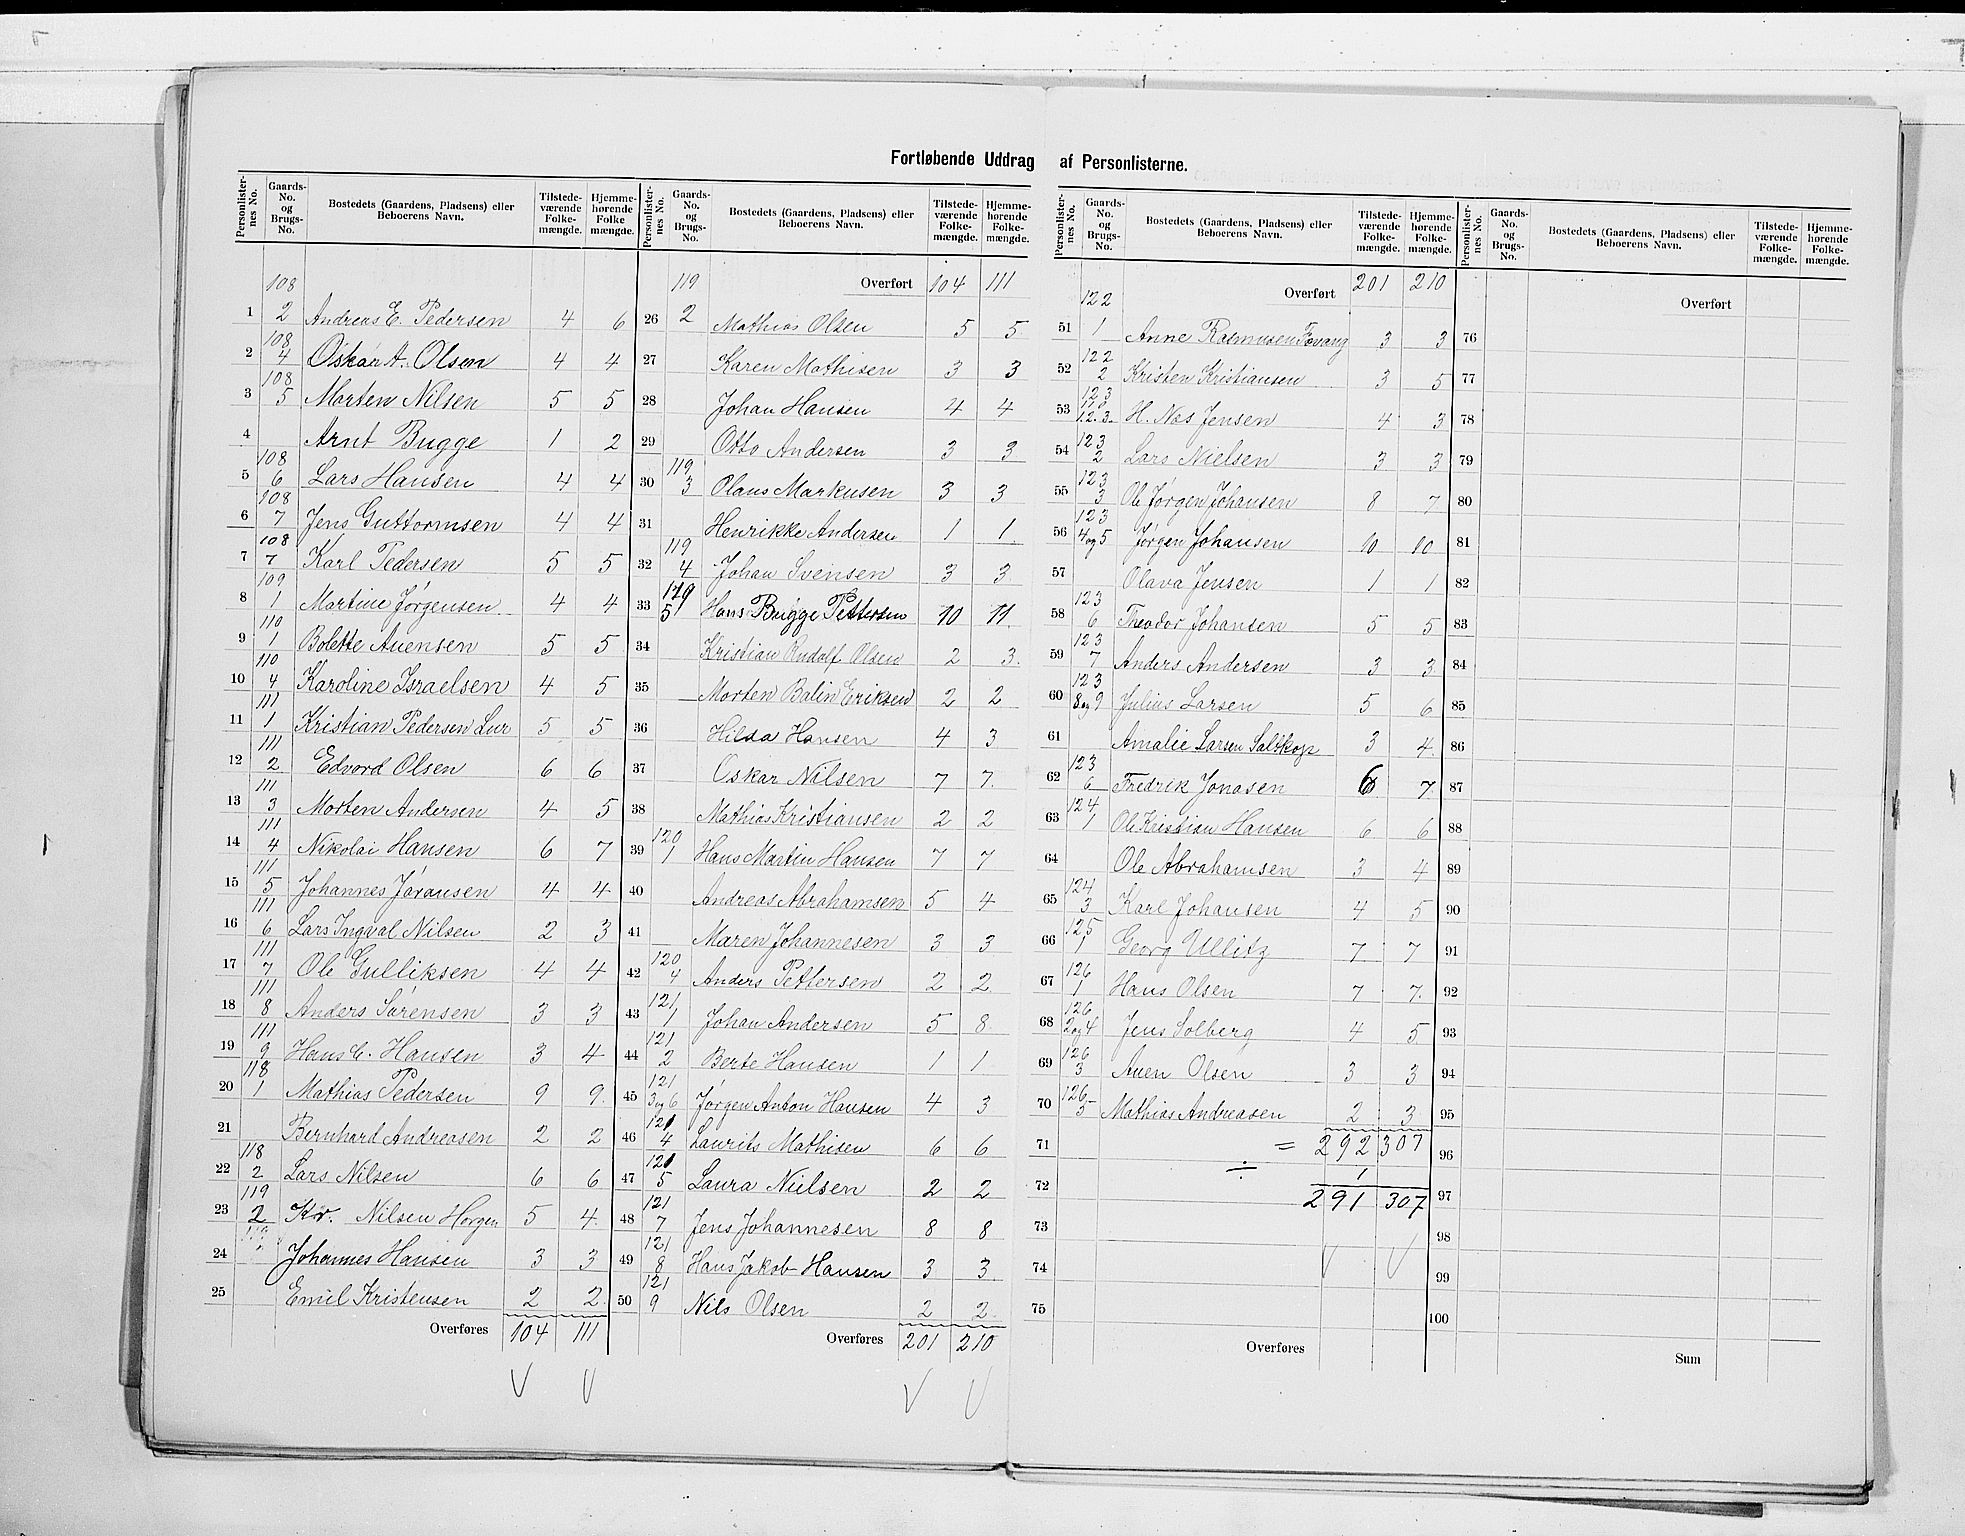 Fortløbende Uddrag af Personlisterne.
Personlister-nes No. Gaards-No. og Brugs-No. Bostedets (Gaardens, Pladsens) eller Beboerens Navn. Tilstede-værende Folke-mængde. Hjemme-hørende Folke mængde.
1 108 2 Andreas E. Pedersen 4 6
2 108 4 Oskar A. Olsen 4 4
3 108 5 Morten Nilsen 5 5
4 Arnt Bugge 1 2
5 108 6 Lars Hansen 4 4
6 108 7 Jens Guttormsen 4 4
7 108 7 Karl Pedersen 5 5
8 109 1 Martine Jørgensen 4 4
9 110 1 Bolette Auensen 5 5
10 110 4 Karoline Israelsen 4 5
11 111 1 Kristian Pedersen Lur 5 5
12 111 2 Edvard Olsen 6 6
13 111 3 Morten Andersen 4 5
14 111 4 Nikolai Hansen 6 7
15 111 5 Johannes Jøransen 4 4
16 111 6 Lars Ingval Nilsen 2 3
17 111 7 Ole Gulliksen 4 4
18 111 8 Anders Sørensen 3 3
19 111 9 Hans C. Hansen 3 4
20 118 1 Mathias Pedersen 9 9
21 Bernhard Andreasen 2 2
22 118 2 Lars Nilsen 6 6
23 119 2 Kr. Nilsen Horgen 5 4
24 Johannes Hansen 3 3
25 Emil Kristensen 2 2
Overføres 104 111
Personlister-nes No. Gaards-No. og Brugs-No. Bostedets (Gaardens, Pladsens) eller Beboerens Navn. Tilstede-værende Folke-mængde. Hjemme-hørende Folke-mængde.
Overført 104 111
26 119 2 Mathias Olsen 5 5
27 Karen Mathisen 3 3
28 Johan Hansen 4 4
29 Otto Andersen 3 3
30 119 3 Olaus Markusen 3 3
31 Henrikke Andersen 1 1
32 119 4 Johan Svensen 3 3
33 119 5 Hans Bugge Pettersen 10 11
34 Kristian Rudolf Olsen 2 3
35 Morten Balin Eriksen 2 2
36 Hilda Hansen 4 3
37 Oskar Nilsen 7 7
38 Mathias Kristiansen 2 2
39 120 1 Hans Martin Hansen 7 7
40 Andreas Abrahamsen 5 4
41 Maren Johannesen 3 3
42 120 4 Anders Pettersen 2 2
43 121 1 Johan Andersen 5 8
44 121 2 Berte Hansen 1 1
45 121 3 og 6 Jørgen Anton Hansen 4 3
46 121 4 Laurits Mathisen 6 6
47 121 5 Laura Nielsen 2 2
48 121 7 Jens Johannesen 8 8
49 121 8 Hans Jakob Hansen 3 3
50 121 9 Nils Olsen 2 2
Overføres 201 210
Personlister-nes No. Gaards-No. og Brugs-No. Bostedets (Gaardens, Pladsens) eller Beboerens Navn. Tilstede-værende Folke-mængde. Hjemme-hørende Folke-mængde.
Overført 201 210
51 122 1 Anne Rasmusen Tovang 3 3
52 122 2 Kristen Kristiansen 3 5
53 123 H. Nøs Jensen 4 3
54 123 2 Lars Nielsen 3 3
55 123 3 Ole Jørgen Johansen 8 7
56 123 4 og 5 Jørgen Johansen 10 10
57 Olava Jensen 1 1
58 123 6 Theodor Johansen 5 5
59 123 7 Anders Andersen 3 3
60 123 8 og 9 Julius Larsen 5 6
61 Amalie Larsen Saltkop 3 4
62 123 6 Fredrik Jonasen 6 7
63 124 1 Ole Kristian Hansen 6 6
64 Ole Abrahamsen 3 4
65 124 3 Karl Johansen 4 5
66 125 1 Georg Ullitz 7 7
67 126 1 Hans Olsen 7 7
68 126 2 og 4 Jens Solberg 4 5
69 126 3 Auen Olsen 3 3
70 126 5 Mathias Andreasen 2 3
71 = 292 307
÷ 1
72 291 307
73
74
75
Overføres
Personlister-nes No. Gaards-No. og Brugs-No. Bostedets (Gaardens, Pladsens) eller Beboerens Navn. Tilstede-værende Folke-mængde. Hjemme-hørende Folke-mængde.
Overført
76
77
78
79
80
81
82
83
84
85
86
87
88
89
90
91
92
93
94
95
96
97
98
99
100
Sum